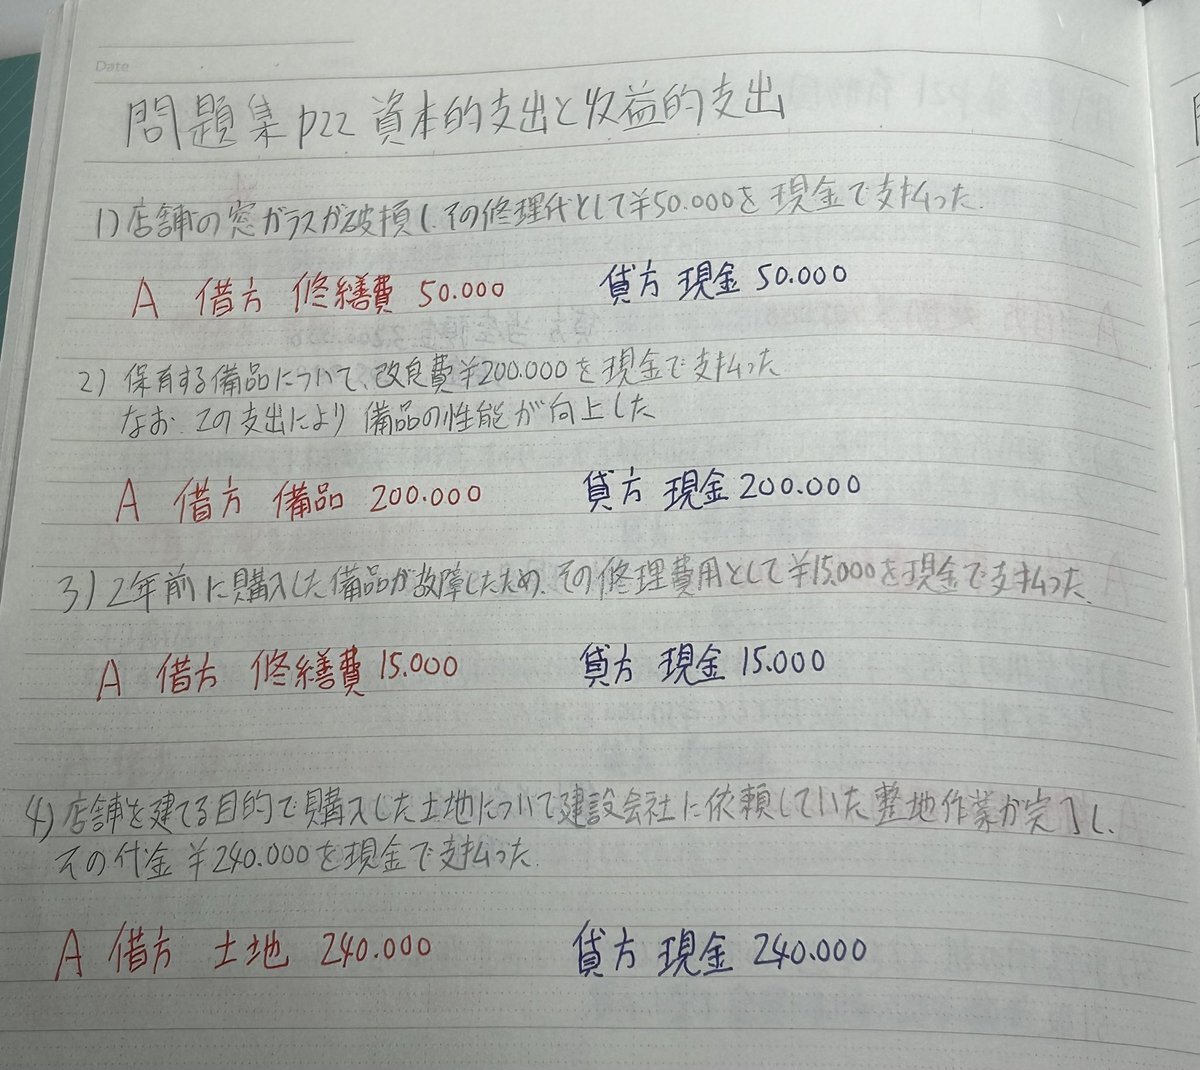 Date
問題集 p22 資本的支出と収益的支出
1) 店舗の窓ガラスが破損し、その修理代として¥50.000を現金で支払った.
A 借方 修繕費 50.000 貸方 現金 50.000
2) 保有する備品について、改良費¥200.000を現金で支払った
なお、この支出により備品の性能が向上した
A 借方 備品 200.000 貸方 現金 200.000
3) 2年前に購入した備品が故障したため、その修理費用として¥15.000を現金で支払った.
A 借方 修繕費 15.000 貸方 現金 15.000
4) 店舗を建てる目的で購入した土地について建設会社に依頼していた整地作業が完了し、
その代金¥240.000を現金で支払った.
A 借方 土地 240.000 貸方 現金 240.000